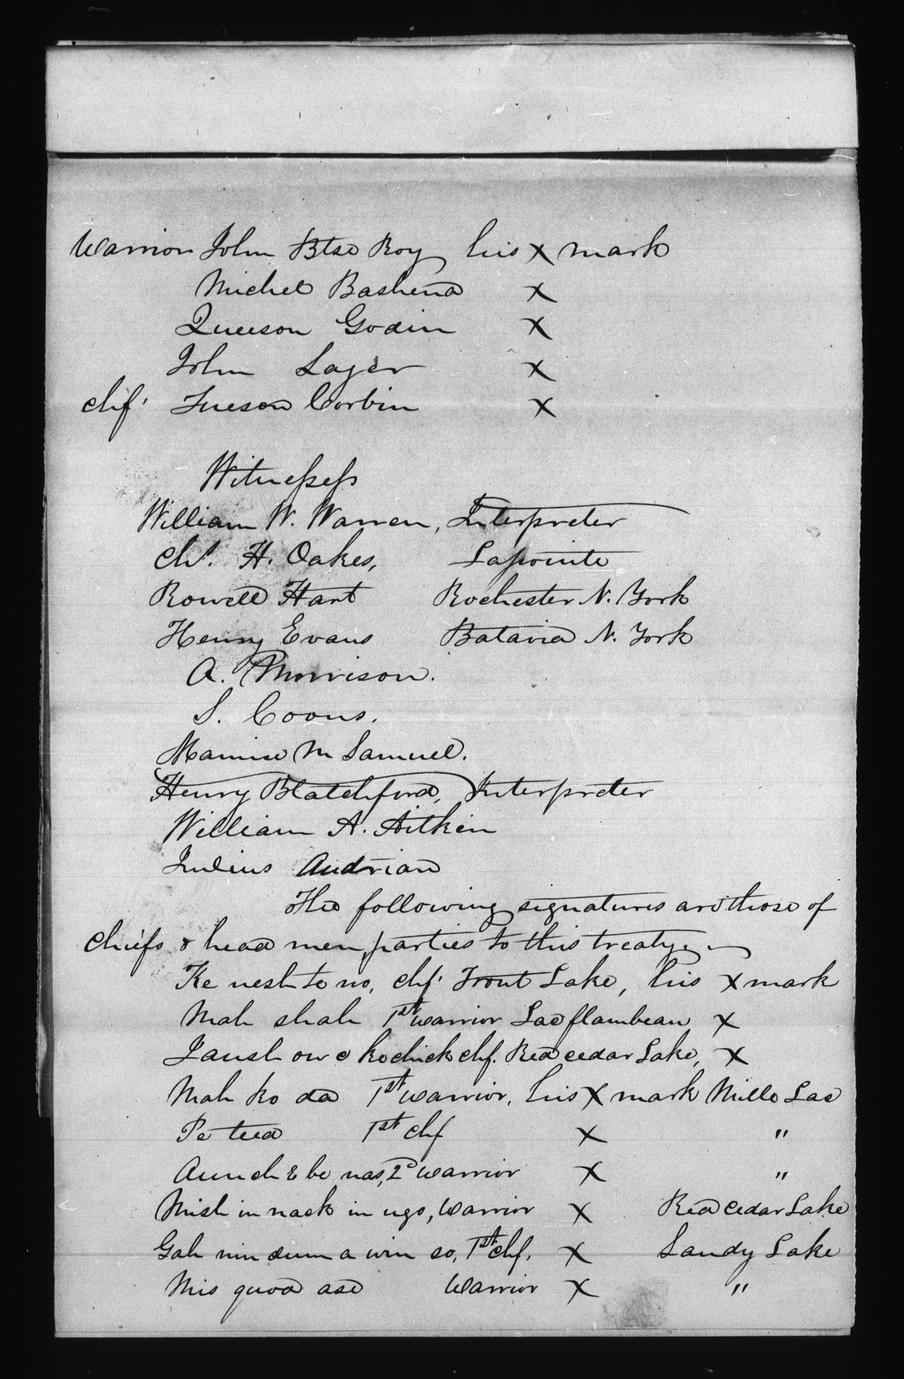 Warrior John Btse Roy his X mark
Michel Bashena X
Queeson Godin X
John Lager X
chf. Fueson Corbin X
Witnesses
William W. Warren, Interpreter
Chs. H. Oakes, Lapointe
Rowell Hart Rochester N. York
Henry Evans Batavia N. York
A. Morrison.
S. Coons.
M Samuel.
Henry Blatchford, Interpreter
William A. Aitken
Julius Audrian
The following signatures are those of
chiefs & head men, parties to this treaty
Ke nesh te no, chf. Trout Lake, his X mark
Mah shah 1st warrior Lac flambeau X
I aush ow e ke chick chf. Red cedar Lake, X
Mah ko da 1st warrior, his X mark Mille Lac
Pe tud 1st chf X "
Aunch e be nas, 2d warrior X "
Mish in nack in ugo, warrior X Red cedar Lake
Gah nin dum a win so, 1st chf. X Sandy Lake
Mis quod ase warrior X "